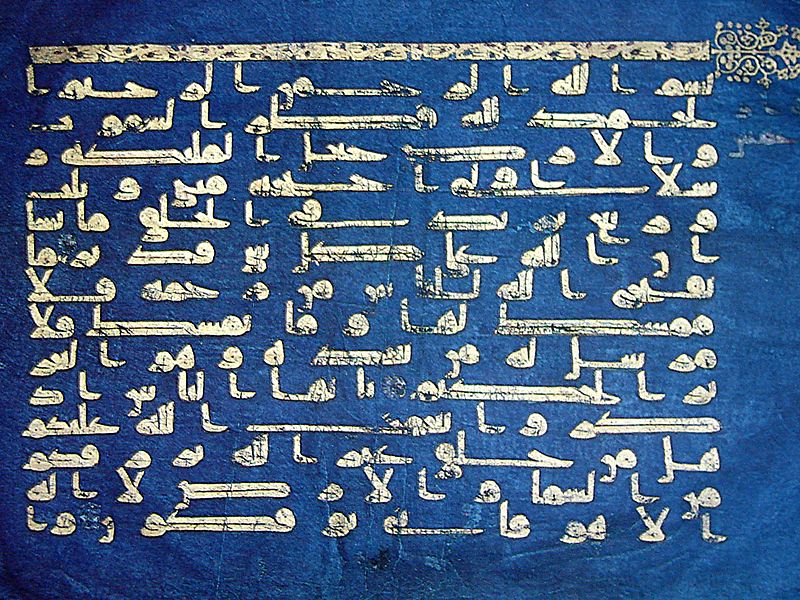 بسم الله الرحمن الرحيم ا
لحمد لله فاطر السموت
والارض جاعل الملئكة ر
سلا اولى اجنحة مثنى وثلث
وربع يزيد في الخلق ما يشا
ان الله على كل شى قدير ما
يفتح الله للناس من رحمة فلا
ممسك لها وما يمسك فلا
مرسل له من بعده وهو العز
يز الحكيم يايها الناس اذ
كروا نعمت الله عليكم
هل من خلق غير الله يرزقكم
من السما والارض لا اله
الا هو فانى توفكون وا